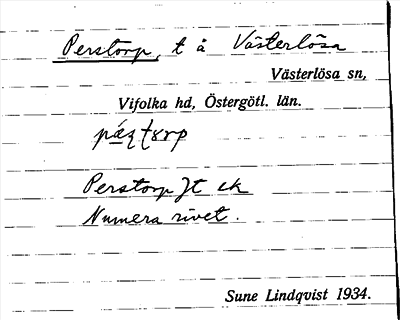 Perstorp, t å Västerlösa
Västerlösa sn,
Vifolka hd, Östergötl. län.
Perstorp Jt ek
Numera rivet.
Sune Lindqvist 1934.